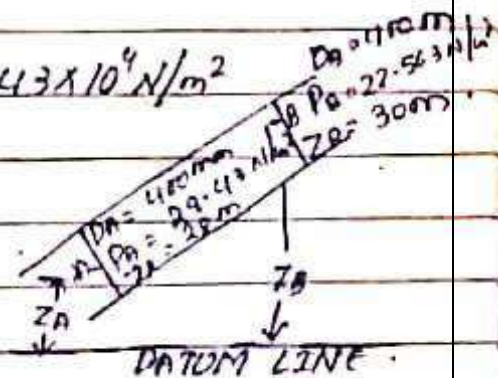 43×10⁴ N/m²
DB = 400m
PB = 22.563 N/m²
ZB = 30m
B
DA = 400mm
PA = 29.43 N/m²
ZA = 28m
A
ZA
ZB
DATUM LINE.